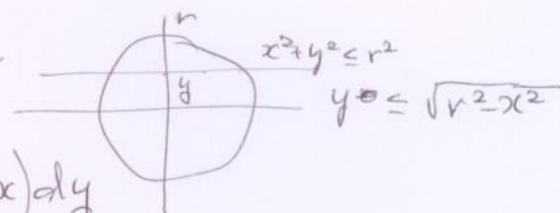 r
x²+y² ≤ r²
y
y ≤ √r²-x²
x)dy